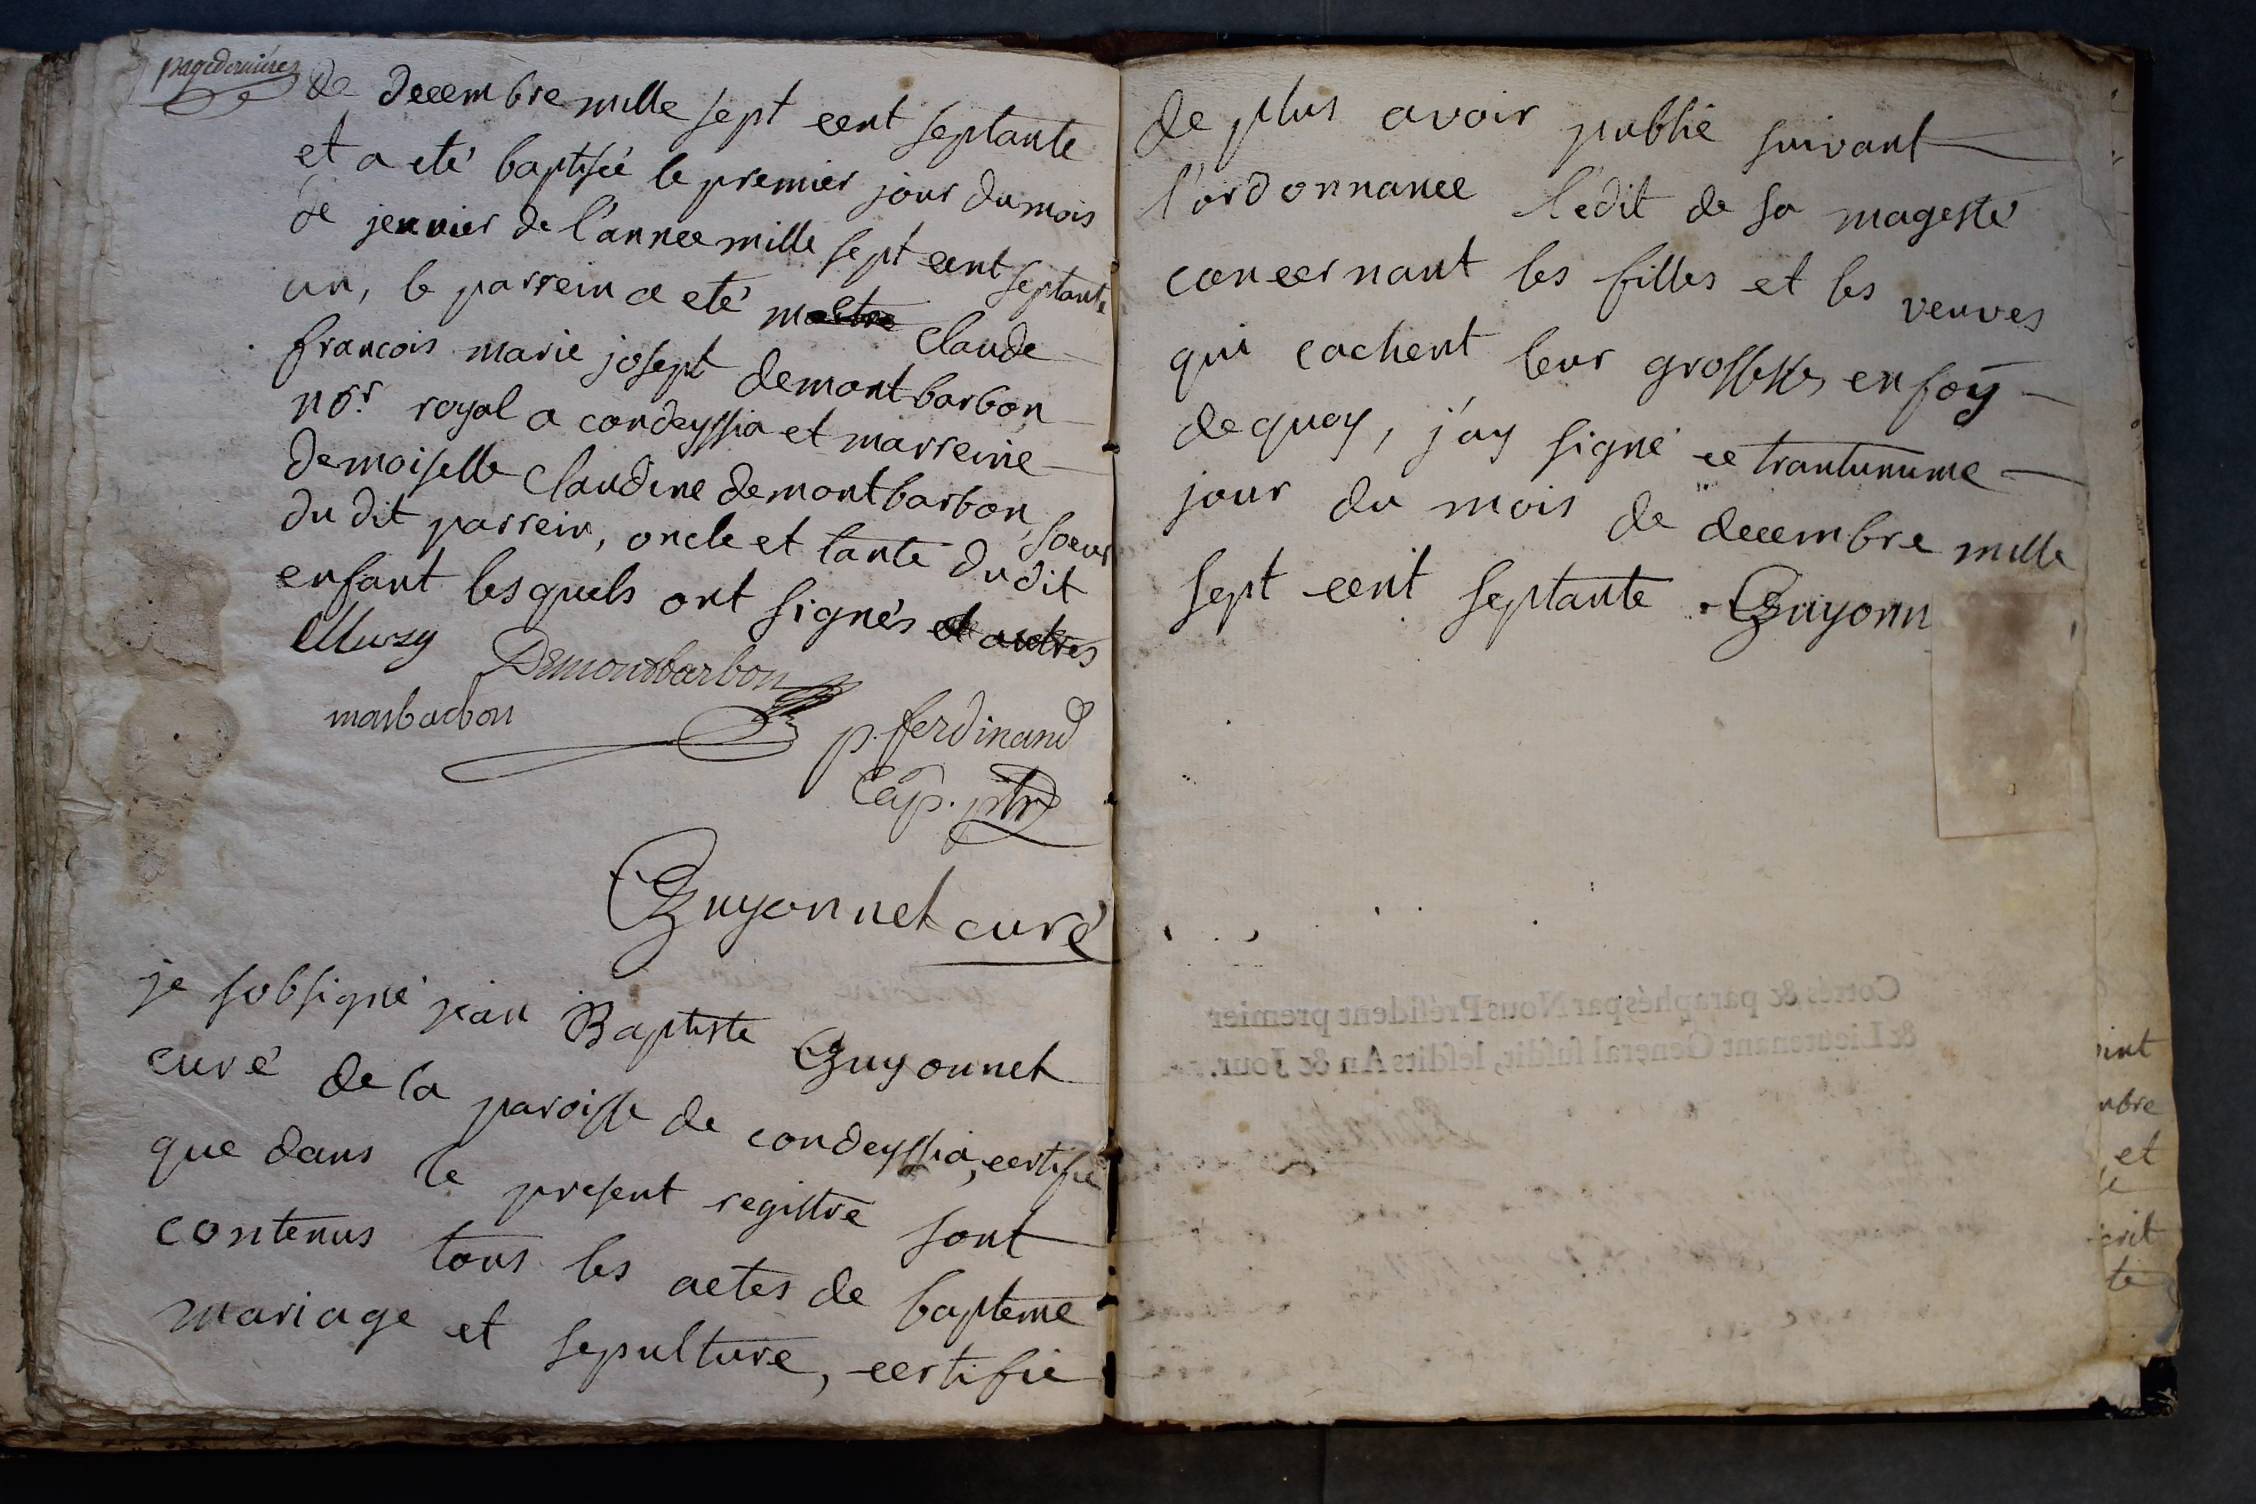 page dernière
de decembre mille sept cent septante
et a eté baptisée le premier jour du mois
de jenvier de l'année mille sept cent septante
un, le parrein a eté maitre Claude
francois marie josept demontbarbon
nor. royal a condeyssia et marreine
demoiselle Claudine demontbarbon, soeur
du dit parrein, oncle et tante du dit
enfant lesquels ont signés et autres
Demontbarbon
monbarbon
p. ferdinand
Cap. ptr
Guyonnet curé
je sobsigné jean Baptiste Guyonnet
curé de la paroisse de condeyssia, certifie
que dans le present registre sont
contenus tous les actes de bapteme
mariage et sepulture, certifie
de plus avoir publié suivant
l'ordonnance l'edit de sa magesté
concernant les filles et les veuves
qui cachent leur grossesses en foy
dequoy, j'ay signé ce trantunume
jour du mois de decembre mille
sept cent septante. Guyonn
Cottés & paraphés par Nous Président premier
& Lieutenant General susdit, lesdits An & Jour.
oint
mbre
et
crit
te